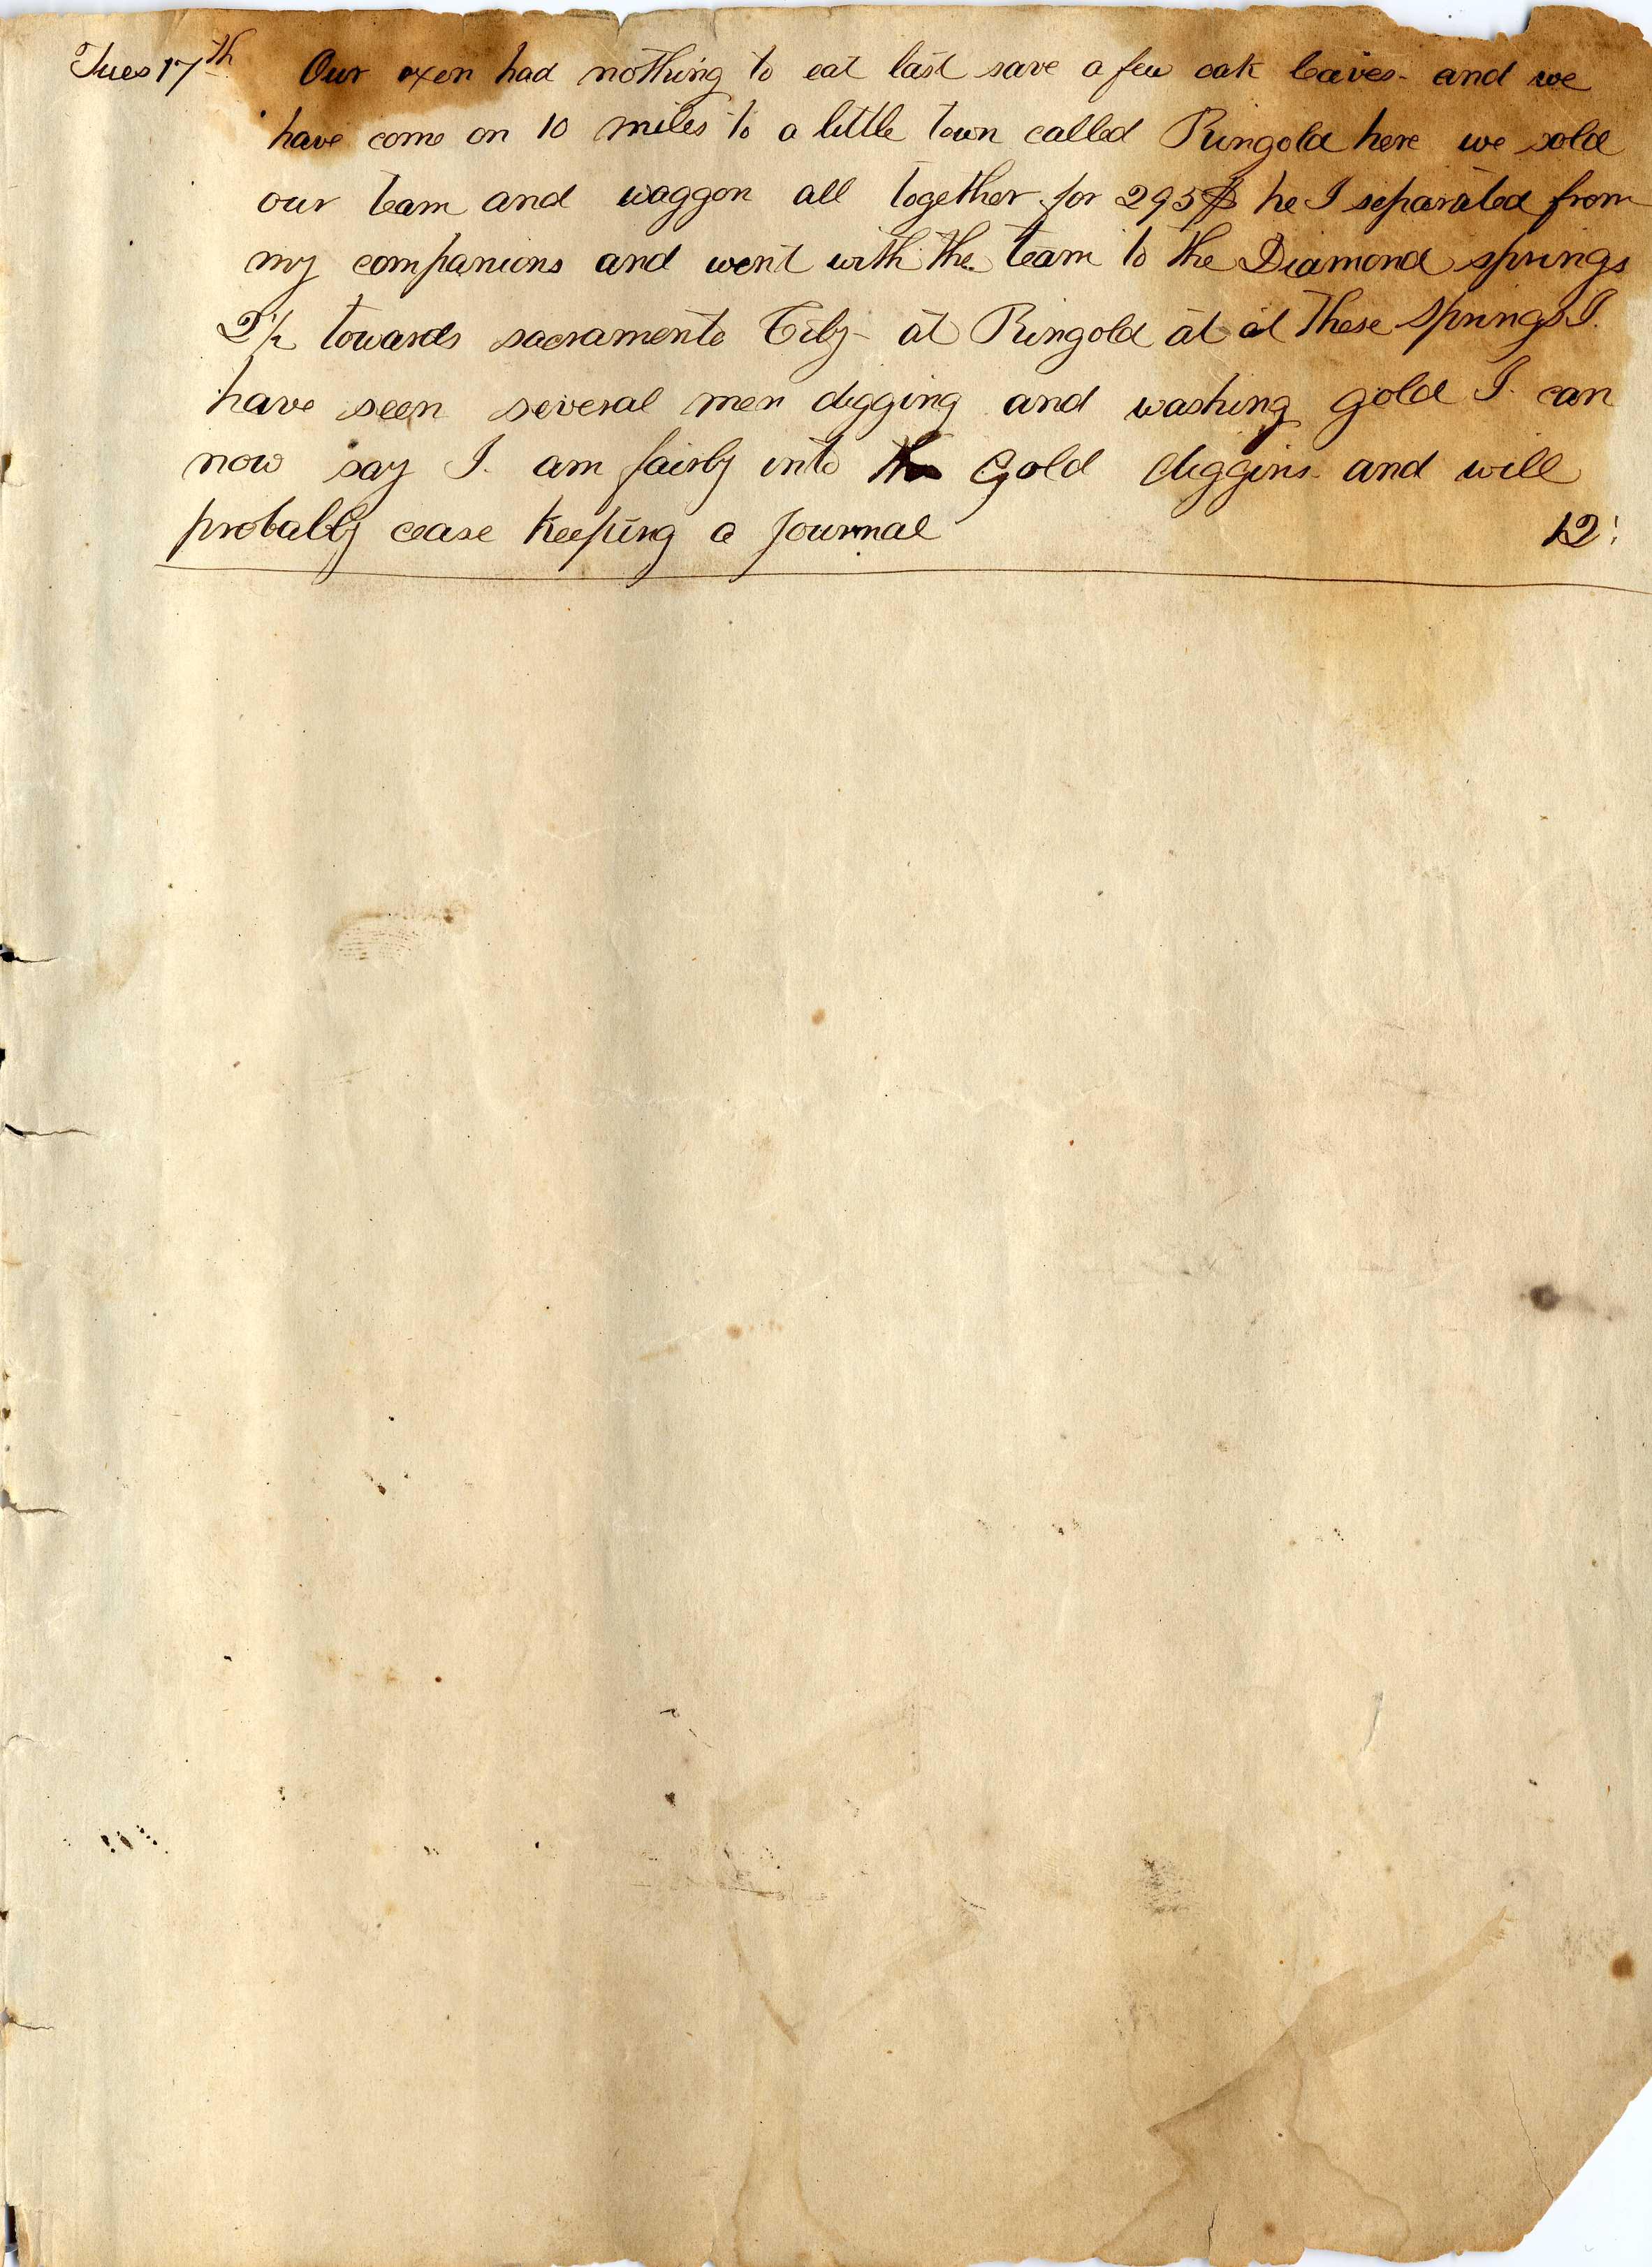 Tues 17th Our oxen had nothing to eat last save a few oak leaves - and we
have come on 10 miles to a little town called Ringold here we sold
our team and waggon all together for 295$ he I separated from
my companions and went with the team to the Diamond springs
2½ towards sacramento City - at Ringold at at these springs I.
have seen several men digging and washing gold I can
now say I. am fairly into the Gold diggins. and will
probably cease keeping a Journal 12!